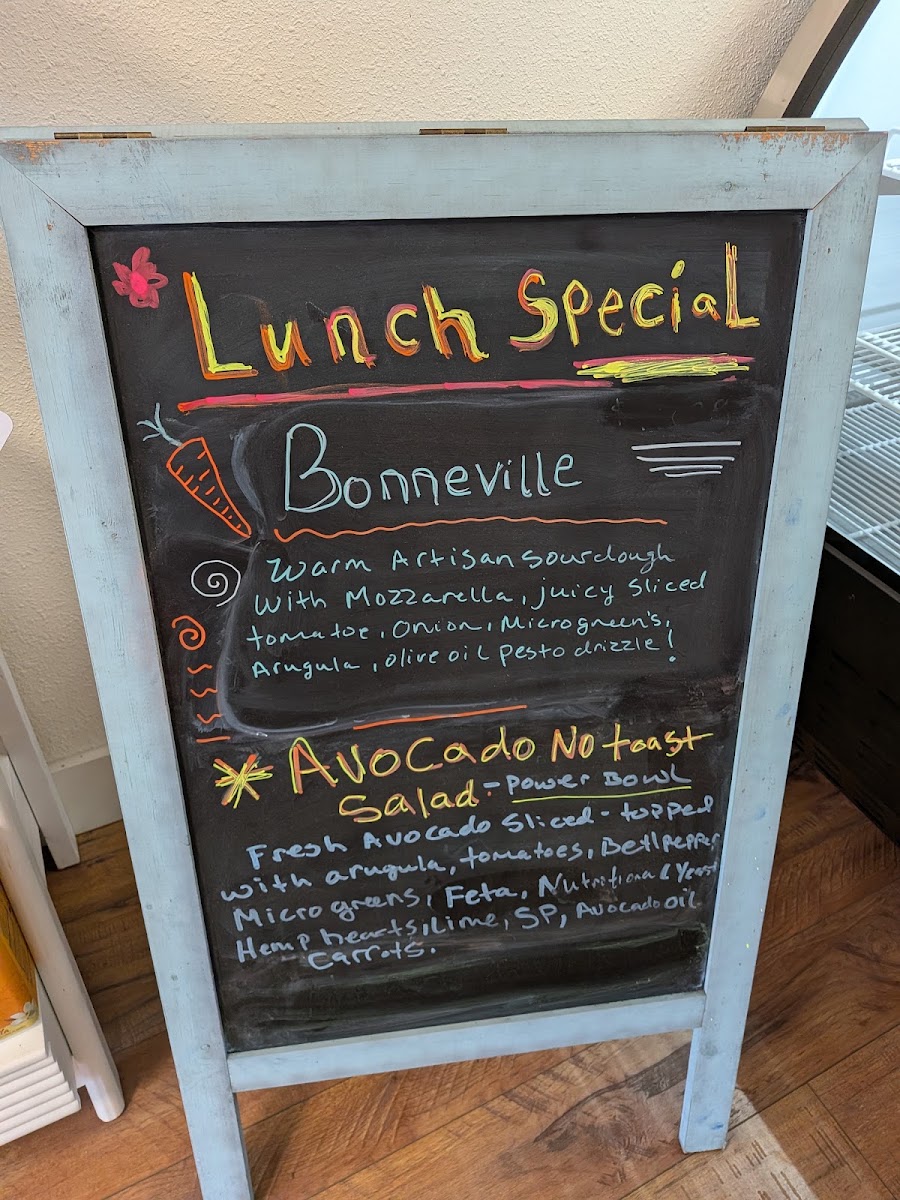 Lunch Special
Bonneville
Warm Artisan Sourdough
With Mozzarella, juicy Sliced
tomatoe, Onion, Microgreen's,
Arugula, olive oil pesto drizzle!
Avocado No toast
Salad - Power Bowl
Fresh Avocado Sliced - topped
with arugula, tomatoes, Bell pepper
Micro greens, Feta, Nutritional Yeast
Hemp hearts, Lime, SP, Avocado oil
Carrots.